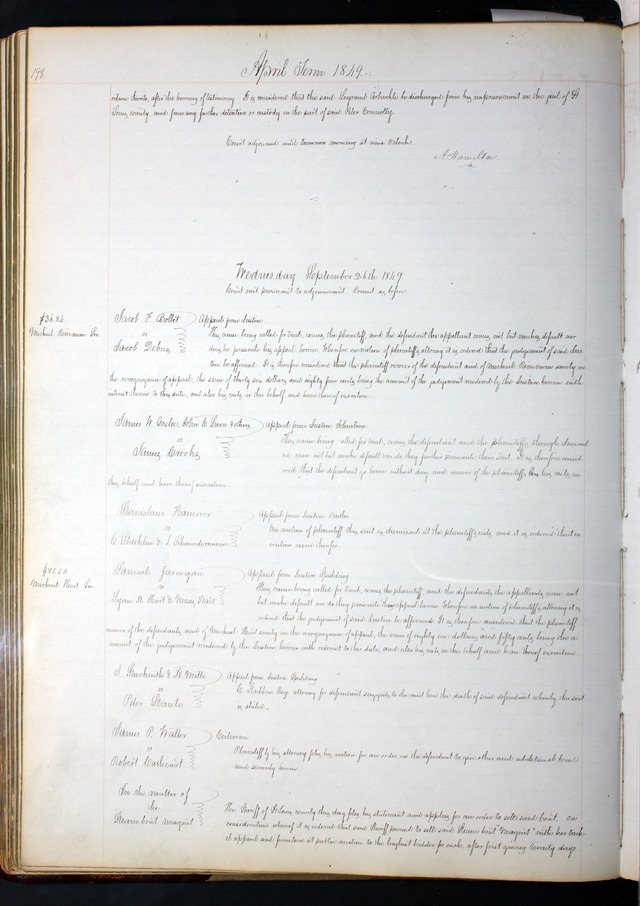 198.
April Term 1849.
return thereto, after the hearing of testimony. It is considered that the said be discharged from his imprisonment in the jail of St
Louis county, and from any further detention or custody on the part of said Peter Connolly.
Court adjourned until tomorrow morning at nine Oclock
A. Hamilton
Wednesday September 26th 1849
Court met pursuant to adjournment. Present as before
$36.84
Michael Sec.
Jacob F. Bollet
vs
Jacob
Appeal from Justice
This cause being called for trial, comes the plaintiff, and the defendant the appellant comes not but makes default nor
does he prosecute his appeal herein. Wherefore on motion of plaintiffs attorney it is ordered that the judgement of said Jus-
tice be affirmed. It is therefore considered that the plaintiff recover of the defendant and of Michael security in
the recognizance of appeal, the sum of thirty six dollars, and eighty four cents, being the amount of the judgement rendered by the Justice herein with
interest thereon to this date, and also his costs in this behalf and have thereof execution.
James W. John C. & others
vs
James Crooks
Appeal from Justice Johnstone
This cause being called for trial, comes the defendant and the plaintiffs though demand-
ed come not but make default nor do they further prosecute their suit. It is therefore consid-
ered that the defendant go hence without day and recover of the plaintiffs, his costs in
this behalf and have thereof execution.
vs
C. & J.
Appeal from Justice Butler
On motion of plaintiff this suit is dismissed at the plaintiffs costs and it is ordered that ex-
ecution issue therefor.
$81.50
Michael Hart Sec.
Samuel Jarnegan
vs
A. Hart & Hart
Appeal from Justice Spaulding
This cause being called for trial, comes the plaintiff, and the defendants the appellants, come not
but make default nor do they prosecute their appeal herein. Wherefore on motion of plaintiffs attorney it is
ordered that the judgement of said Justice be affirmed. It is therefore considered that the plaintiff
recover of the defendants, and of Michael Hart surety in the recognizance of appeal, the sum of eighty one dollars, and fifty cents, being the a-
mount of the judgement rendered by the Justice herein with interest to this date, and also his costs in this behalf and have thereof execution.
& H. Mills
vs
Peter
Appeal from Justice Spaulding
C. Esq. attorney for defendant suggests to the court here the death of said defendant whereby this suit
is abated.
James P. Waller
vs
Robert Cathcart
Certiorari
Plaintiff by his attorney files his motion for an order on the defendant to give other and additional bond
and security herein.
In the matter of
the
Steam boat
The Sheriff of St Louis county this day files his statement and applies for an order to sell said boat, on
consideration whereof it is ordered that said Sheriff proceed to sell said Steam boat with her tack-
el apparel and furniture at public auction to the highest bidder for cash, after first giving twenty days